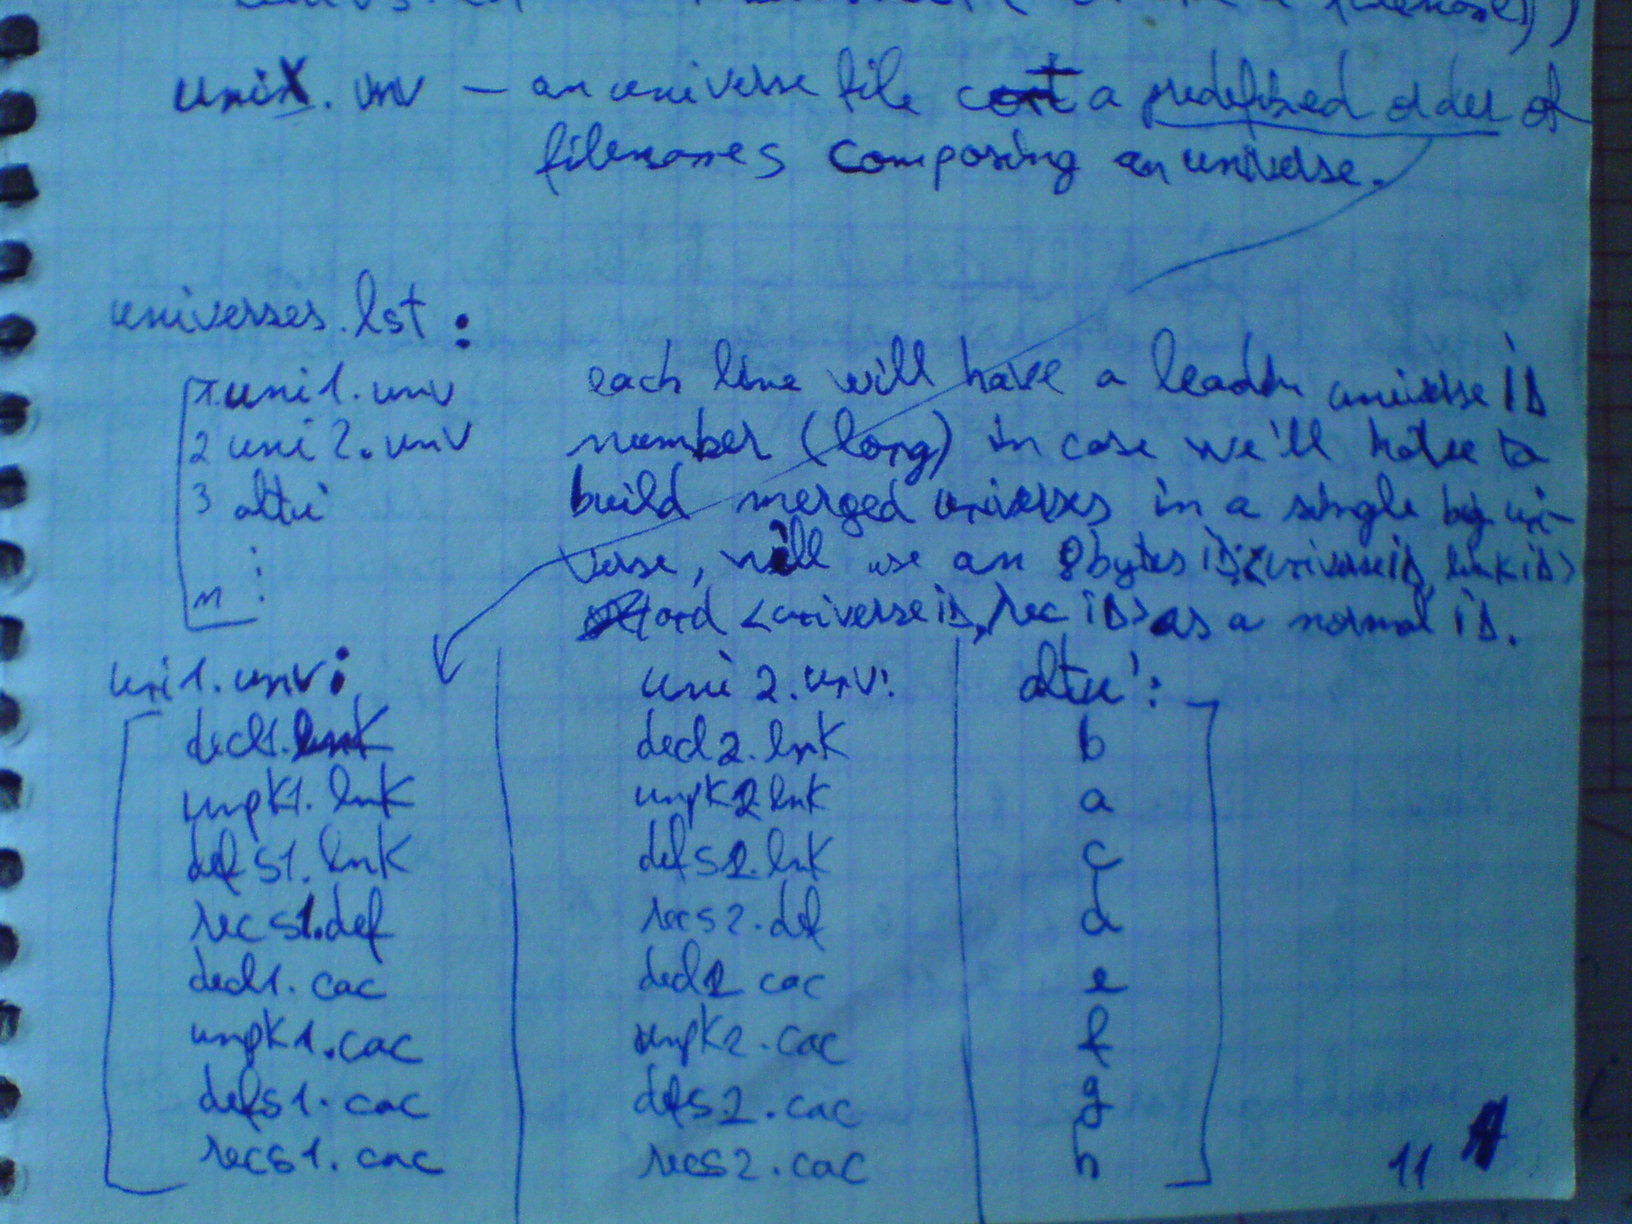 uniX.unv — an universe file a predefined order of
filenames composing an universe.
universes.lst :
1 uni1.unv
2 uni2.unv
3 altu'
n
each line will have a leadin universe iD
number (long) in case we'll have to
build merged universes in a single big uni-
verse, will use an 8bytes iD <universeiD, lnkiD>
and <universeiD, rec iD> as a normal iD.
uni1.unv:
decl1.lnk
unpk1.lnk
defs1.lnk
recs1.def
decl1.cac
unpk1.cac
defs1.cac
recs1.cac
uni2.unv:
decl2.lnk
unpk2.lnk
defs2.lnk
recs2.def
decl2.cac
unpk2.cac
defs2.cac
recs2.cac
altu':
b
a
c
d
e
f
g
h
11 A